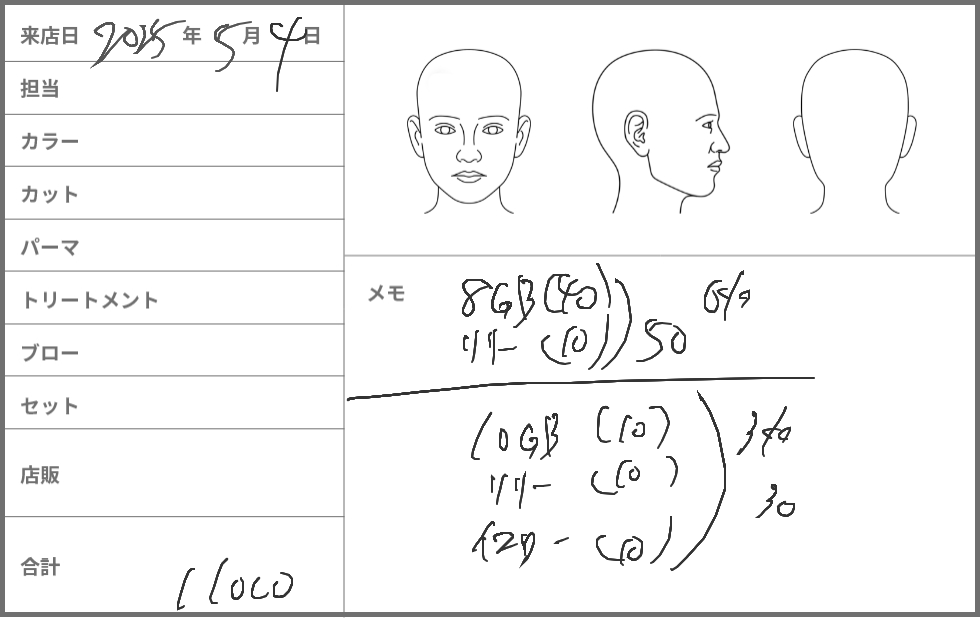 来店日 2025年5月4日
担当
カラー
カット
パーマ
トリートメント
ブロー
セット
店販
合計 11000
メモ
8GB(40) 6%
リリー (10) 50
10GB (10) 3%
リリー (10)
30
(10)